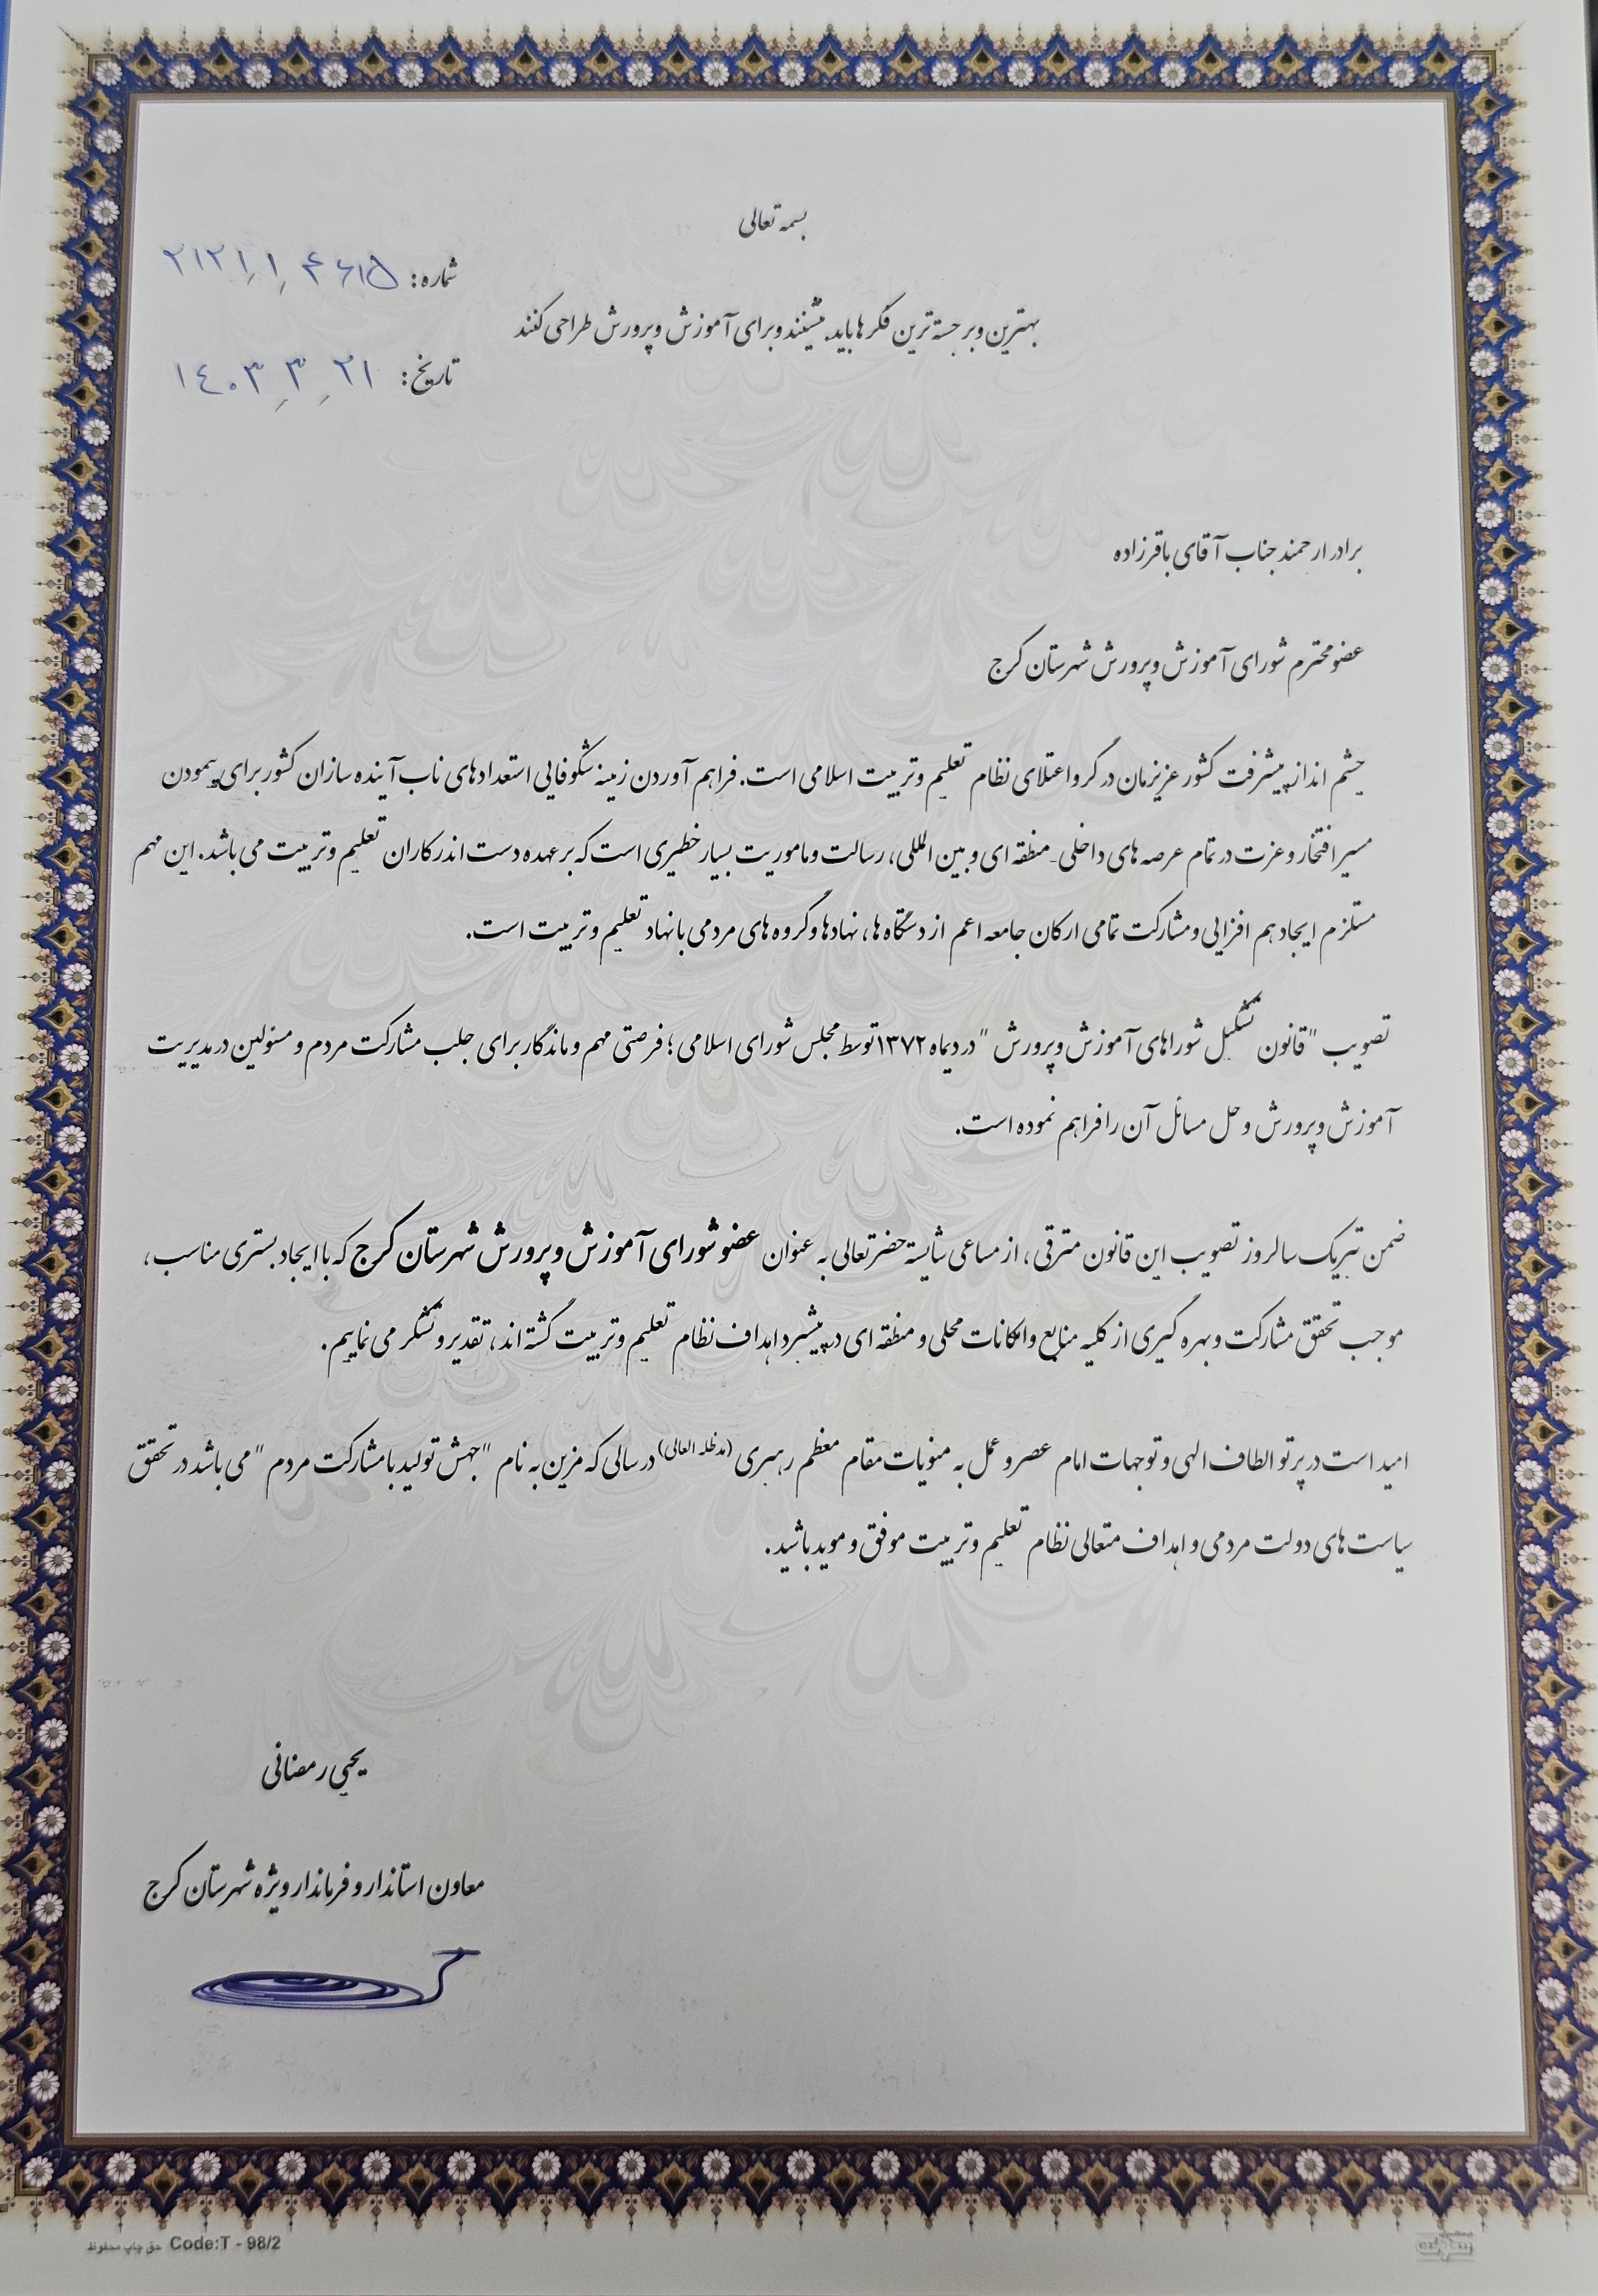 بسمه تعالی
شماره: ۲۱۲۱/۱/۴۶۱۵
بهترین و برجسته ترین فکرها باید بنشینند و برای آموزش و پرورش طراحی کنند
تاریخ: ۱۴۰۳/۳/۲۱
برادر ارجمند جناب آقای باقرزاده
عضو محترم شورای آموزش و پرورش شهرستان کرج
چشم انداز پیشرفت کشور عزیزمان در گرو اعتلای نظام تعلیم و تربیت اسلامی است. فراهم آوردن زمینه شکوفایی استعدادهای ناب آینده سازان کشور برای پیمودن
مسیر افتخار و عزت در تمام عرصه های داخلی-منطقه ای و بین المللی، رسالت و ماموریت بسیار خطیری است که بر عهده دست اندرکاران تعلیم و تربیت می باشد. این مهم
مستلزم ایجاد هم افزایی و مشارکت تمامی ارکان جامعه اعم از دستگاه ها، نهادها و گروه های مردمی با نهاد تعلیم و تربیت است.
تصویب "قانون تشکیل شوراهای آموزش و پرورش" در دیماه ۱۳۷۲ توسط مجلس شورای اسلامی؛ فرصتی مهم و ماندگار برای جلب مشارکت مردم و مسئولین در مدیریت
آموزش و پرورش و حل مسائل آن را فراهم نموده است.
ضمن تبریک سالروز تصویب این قانون مترقی، از مساعی شایسته حضرتعالی به عنوان عضو شورای آموزش و پرورش شهرستان کرج که با ایجاد بستری مناسب،
موجب تحقق مشارکت و بهره گیری از کلیه منابع و امکانات محلی و منطقه ای در پیشبرد اهداف نظام تعلیم و تربیت گشته اند، تقدیر و تشکر می نماییم.
امید است در پرتو الطاف الهی و توجهات امام عصر و عمل به منویات مقام معظم رهبری (مدظله العالی) در سالی که مزین به نام "جهش تولید با مشارکت مردم" می باشد در تحقق
سیاست های دولت مردمی و اهداف متعالی نظام تعلیم و تربیت موفق و موید باشید.
یحیی رمضانی
معاون استاندار و فرماندار ویژه شهرستان کرج
حق چاپ محفوظ Code:T - 98/2